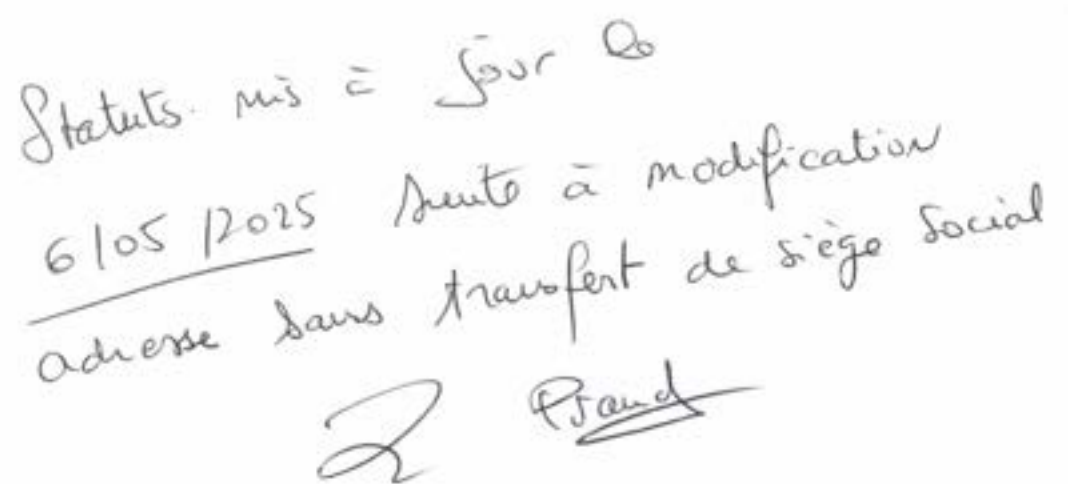 Statuts mis à jour le
6/05/2025 suite à modification
adresse sans transfert de siège social